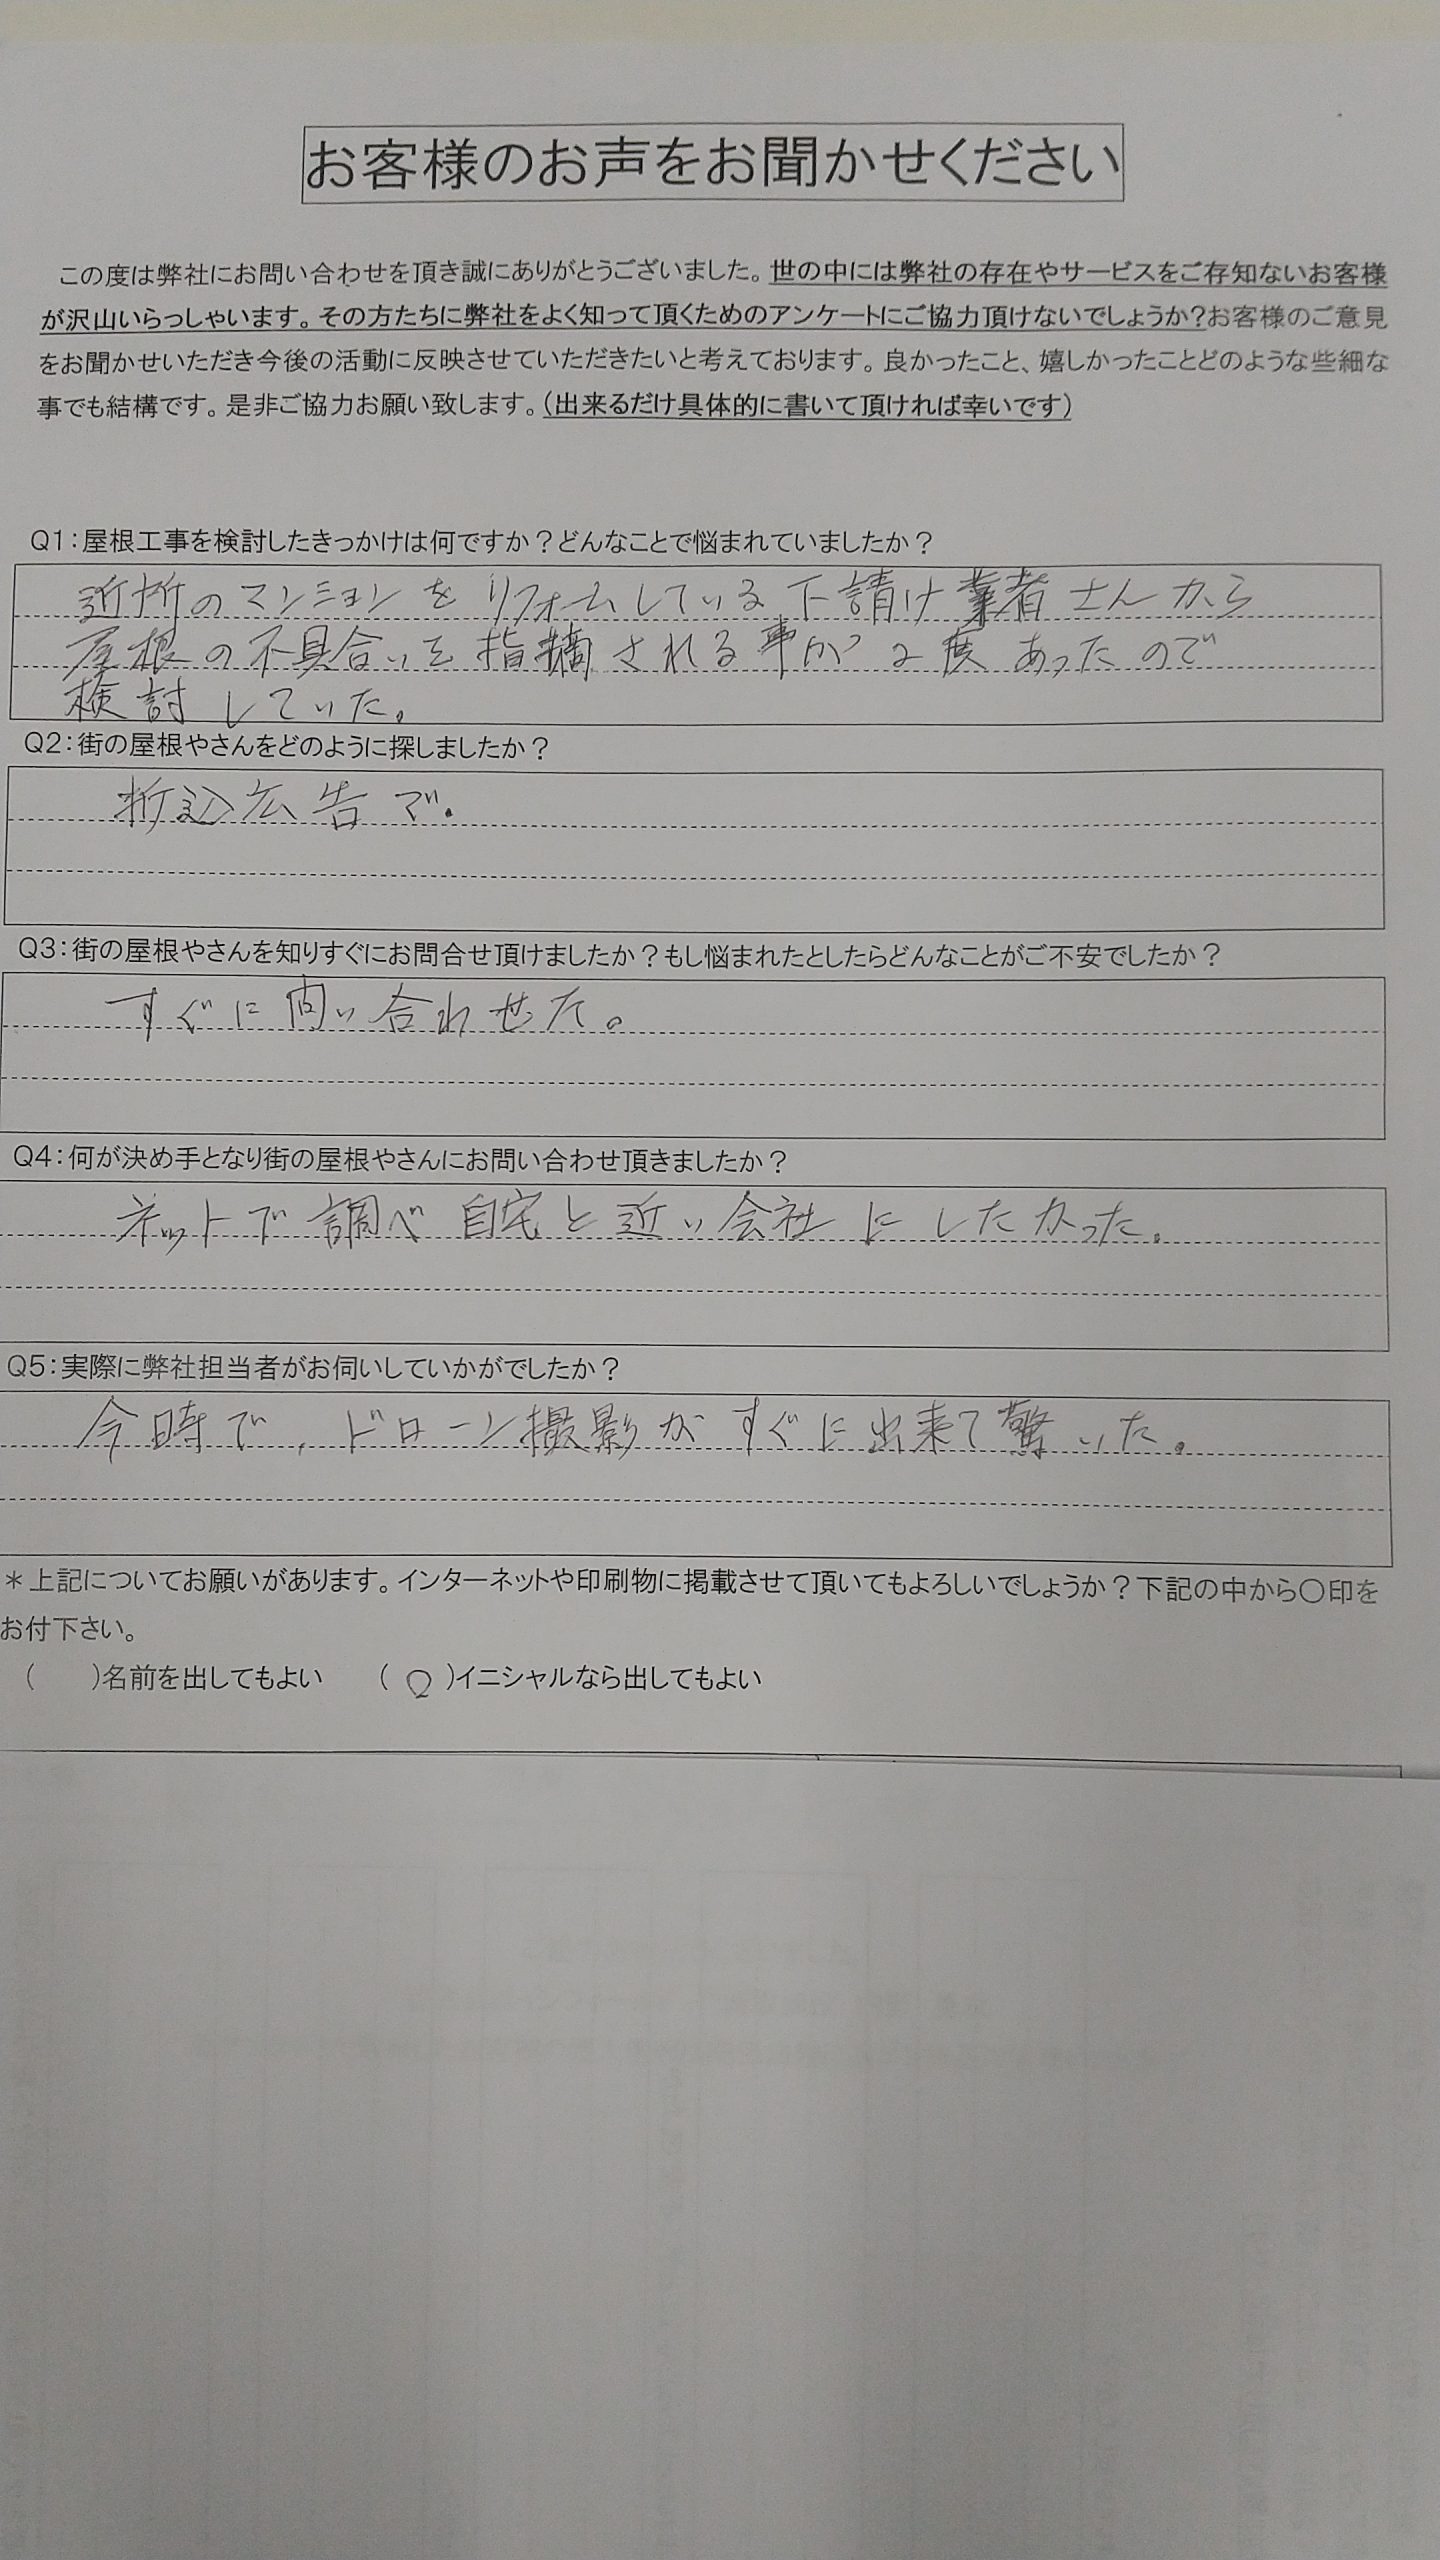 お客様のお声をお聞かせください
この度は弊社にお問い合わせを頂き誠にありがとうございました。世の中には弊社の存在やサービスをご存知ないお客様
が沢山いらっしゃいます。その方たちに弊社をよく知って頂くためのアンケートにご協力頂けないでしょうか?お客様のご意見
をお聞かせいただき今後の活動に反映させていただきたいと考えております。良かったこと、嬉しかったことどのような些細な
事でも結構です。是非ご協力お願い致します。(出来るだけ具体的に書いて頂ければ幸いです)
Q1:屋根工事を検討したきっかけは何ですか?どんなことで悩まれていましたか?
近所のマンションをリフォームしている下請け業者さんから
屋根の不具合いを指摘される事が2度あったので
検討していた。
Q2:街の屋根やさんをどのように探しましたか?
折込広告で.
Q3:街の屋根やさんを知りすぐにお問合せ頂けましたか?もし悩まれたとしたらどんなことがご不安でしたか?
すぐに問い合わせた。
Q4:何が決め手となり街の屋根やさんにお問い合わせ頂きましたか?
ネットで調べ自宅と近い会社にしたかった。
Q5:実際に弊社担当者がお伺いしていかがでしたか?
今時で、ドローン撮影がすぐに出来て驚いた。
*上記についてお願いがあります。インターネットや印刷物に掲載させて頂いてもよろしいでしょうか?下記の中から〇印を
お付下さい。
( )名前を出してもよい (〇)イニシャルなら出してもよい